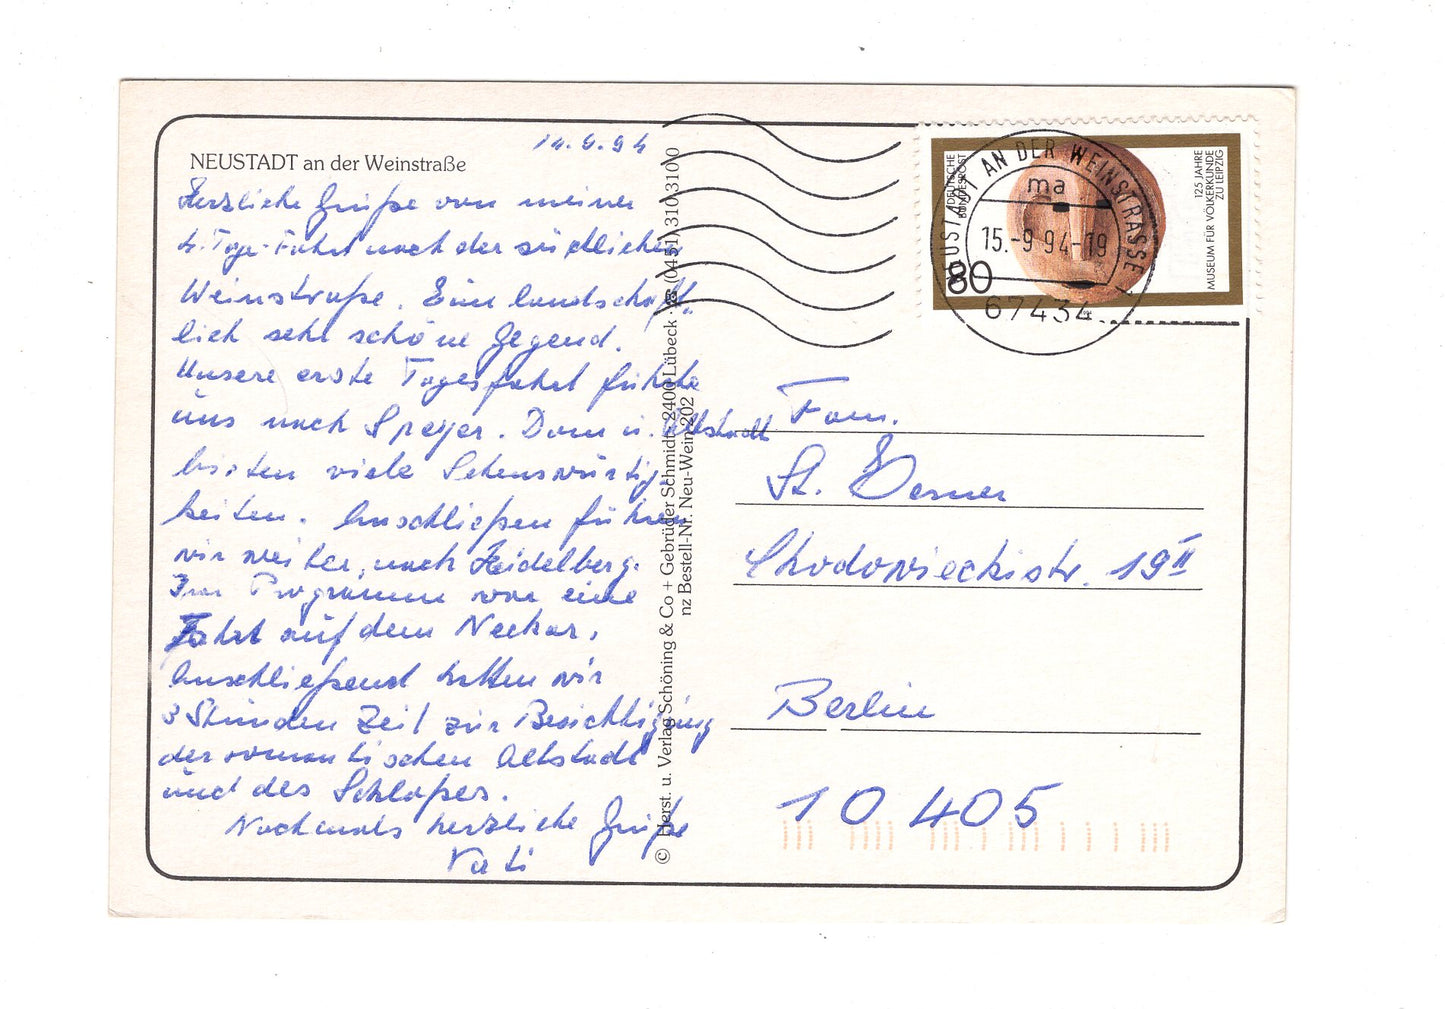 NEUSTADT an der Weinstraße
14.9.94
Herzliche Grüße von meiner
4. Tage-Fahrt nach der südlichen
Weinstraße. Eine landschaft-
lich sehr schöne Gegend.
Unsere erste Tagesfahrt führte
uns nach Speyer. Dom u. Altstadt
bieten viele Sehenswürdig-
keiten. Anschließen führen
wir weiter, nach Heidelberg.
Im Programm war eine
Fahrt auf dem Neckar.
Anschließend hatten wir
3 Stunden Zeit zur Besichtigung
der romantischen Altstadt
und des Schloßes.
Nochmals herzliche Grüße
Vati
© Herst. u. Verlag Schöning & Co + Gebrüder Schmidt · 2400 Lübeck · ☎ (0451) 310310
nz Bestell-Nr. Neu-Wein 202
DEUTSCHE
BUNDESPOST
80
125 JAHRE
MUSEUM FÜR VÖLKERKUNDE
ZU LEIPZIG
NEUSTADT AN DER WEINSTRASSE 1
ma
15.-9.94-19
67434
Fam.
St.
Chodowieckistr. 19 II
Berlin
10 405